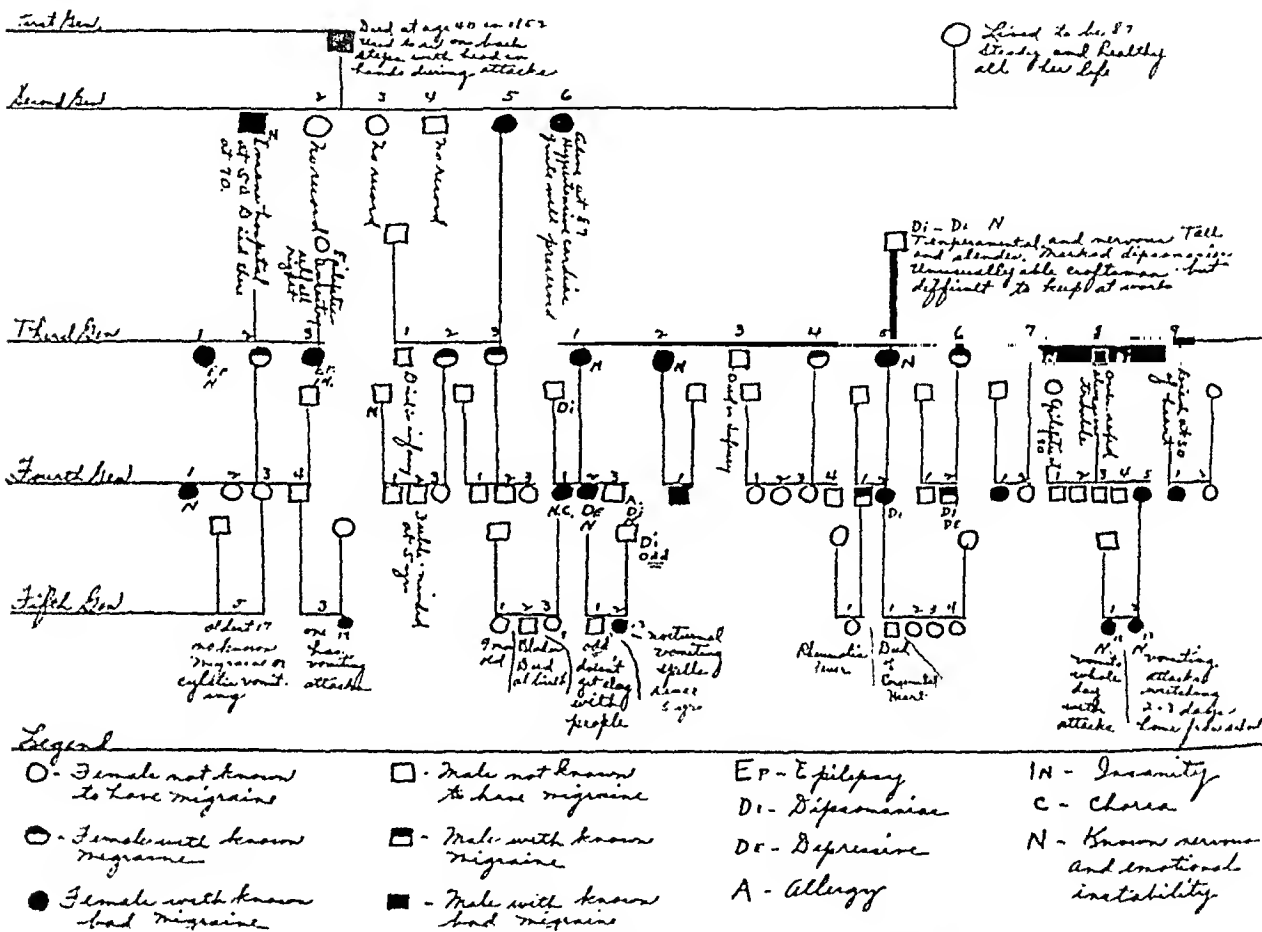 First Gen.
Died at age 40 in 1852
Used to sit on back
steps with head in
hands during attacks
Lived to be 87
Steady and healthy
all her life
Second Gen
2 3 4 5 6
N
Insane hospital
at 50 Died there
at 70.
no record
no record
no record
Alive at 87
Hypertensive cardiac
well preserved
Epileptic
Di - De N
Temperamental and nervous Tall
and slender. Marked dipsomaniac
Unusually able craftsman but
difficult to keep at work
Third Gen
1 2 3 1 2 3 1 2 3 4 5 6 7 8 9
EP
N
N
N
N
Died in infancy
Died in infancy
Died at 50
of heart
N
Di
Fourth Gen
1 2 3 4 1 2 3 1 2 3 1 2 3 1 1 2 3 4 1 2 1 2 1 2 1 2 3 4 5 1 2
N
N.C.
DE
N
A
Di
Di
odd
Di
Di
DE
Feeble minded
at 5 yrs
Fifth Gen
5 3 1 2 3 1 2 1 1 2 3 4 1 2
oldest 17
no known
migraine or
cyclic vomit-
ing
17
one
has
vomiting
attacks
9 mo
old
Died
at birth
odd
doesn't
get along
with
people
nocturnal
vomiting
spells
since
5 yrs
Rheumatic
fever
Died
of
Congenital
Heart
N
vomits
whole
day
with
attacks
N
vomiting
attacks
2-3 days
home from school
Legend
O - Female not known
to have migraine
- Female with known
migraine
Female with known
bad migraine
- Male not known
to have migraine
- Male with known
migraine
- Male with known
bad migraine
EP - Epilepsy
DI - Dipsomaniac
DE - Depressive
A - Allergy
IN - Insanity
C - Chorea
N - Known nervous
and emotional
instability